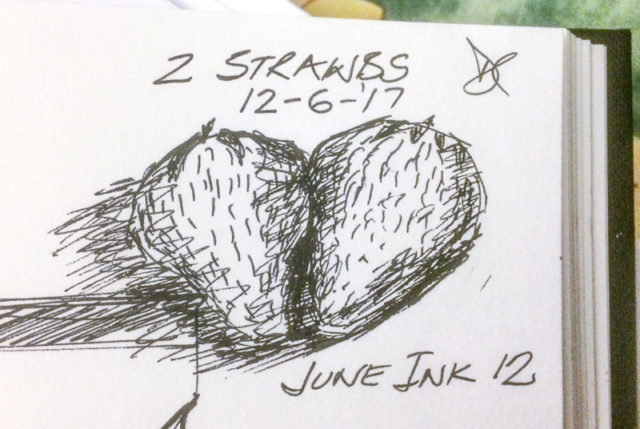 2 STRAWBS
12-6-'17
JUNE INK 12